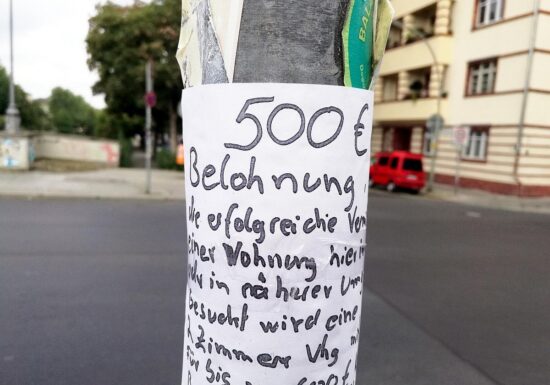 500 €
Belohnung
die erfolgreiche Verm
einer Wohnung hier in
oder in näherer Um
Gesucht wird eine
2 Zimmer Whg mi
für bis